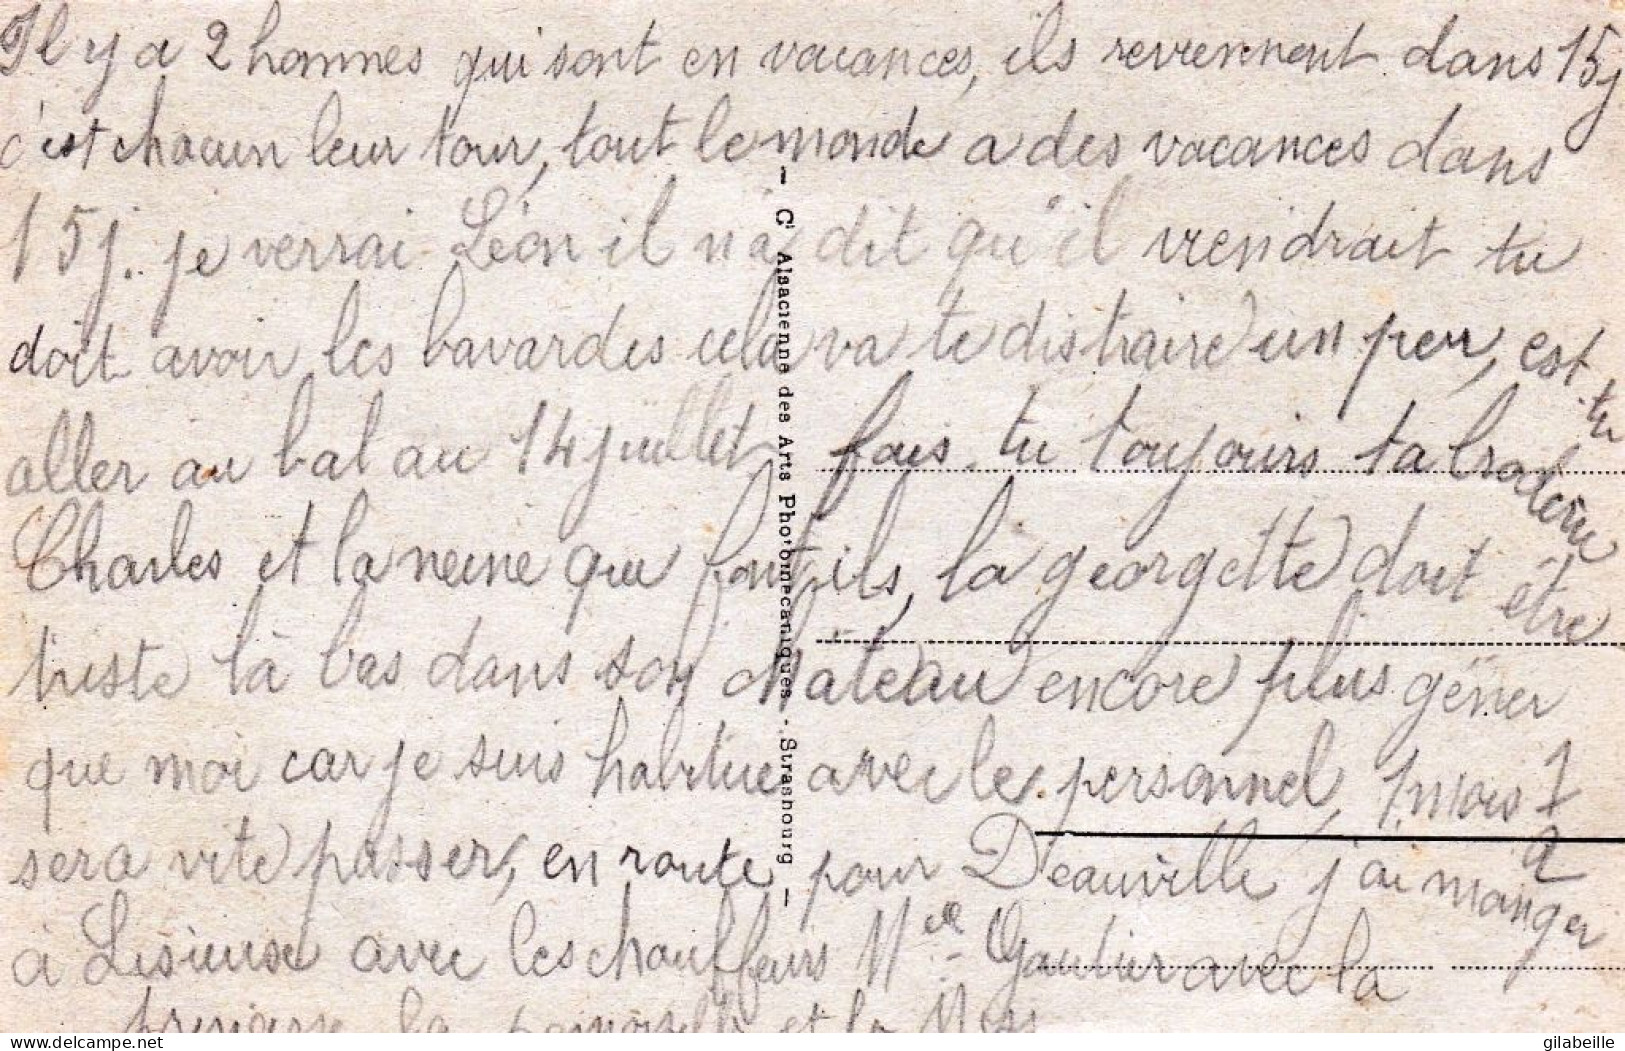 Il y a 2 hommes qui sont en vacances, ils reviennent dans 15 j
c'est chacun leur tour, tout le monde a des vacances dans
15 j. je verrai Léon il n'a dit qu'il viendrait tu
doit avoir les bavardes cela va te distraire un peu, est-tu
aller au bal au 14 juillet fais tu toujours ta broderie
Charles et la neine que font-ils, la georgette doit être
triste là bas dans son château encore plus gêner
que moi car je suis habitué avec le personnel, 1 mois 1/2
sera vite passer, en route pour Deauville j'ai manger
à Lisieuse avec les chauffeurs Melle Gautier avec la
la et la
- Cie Alsacienne des Arts Photomécaniques - Strasbourg -
gilabeille